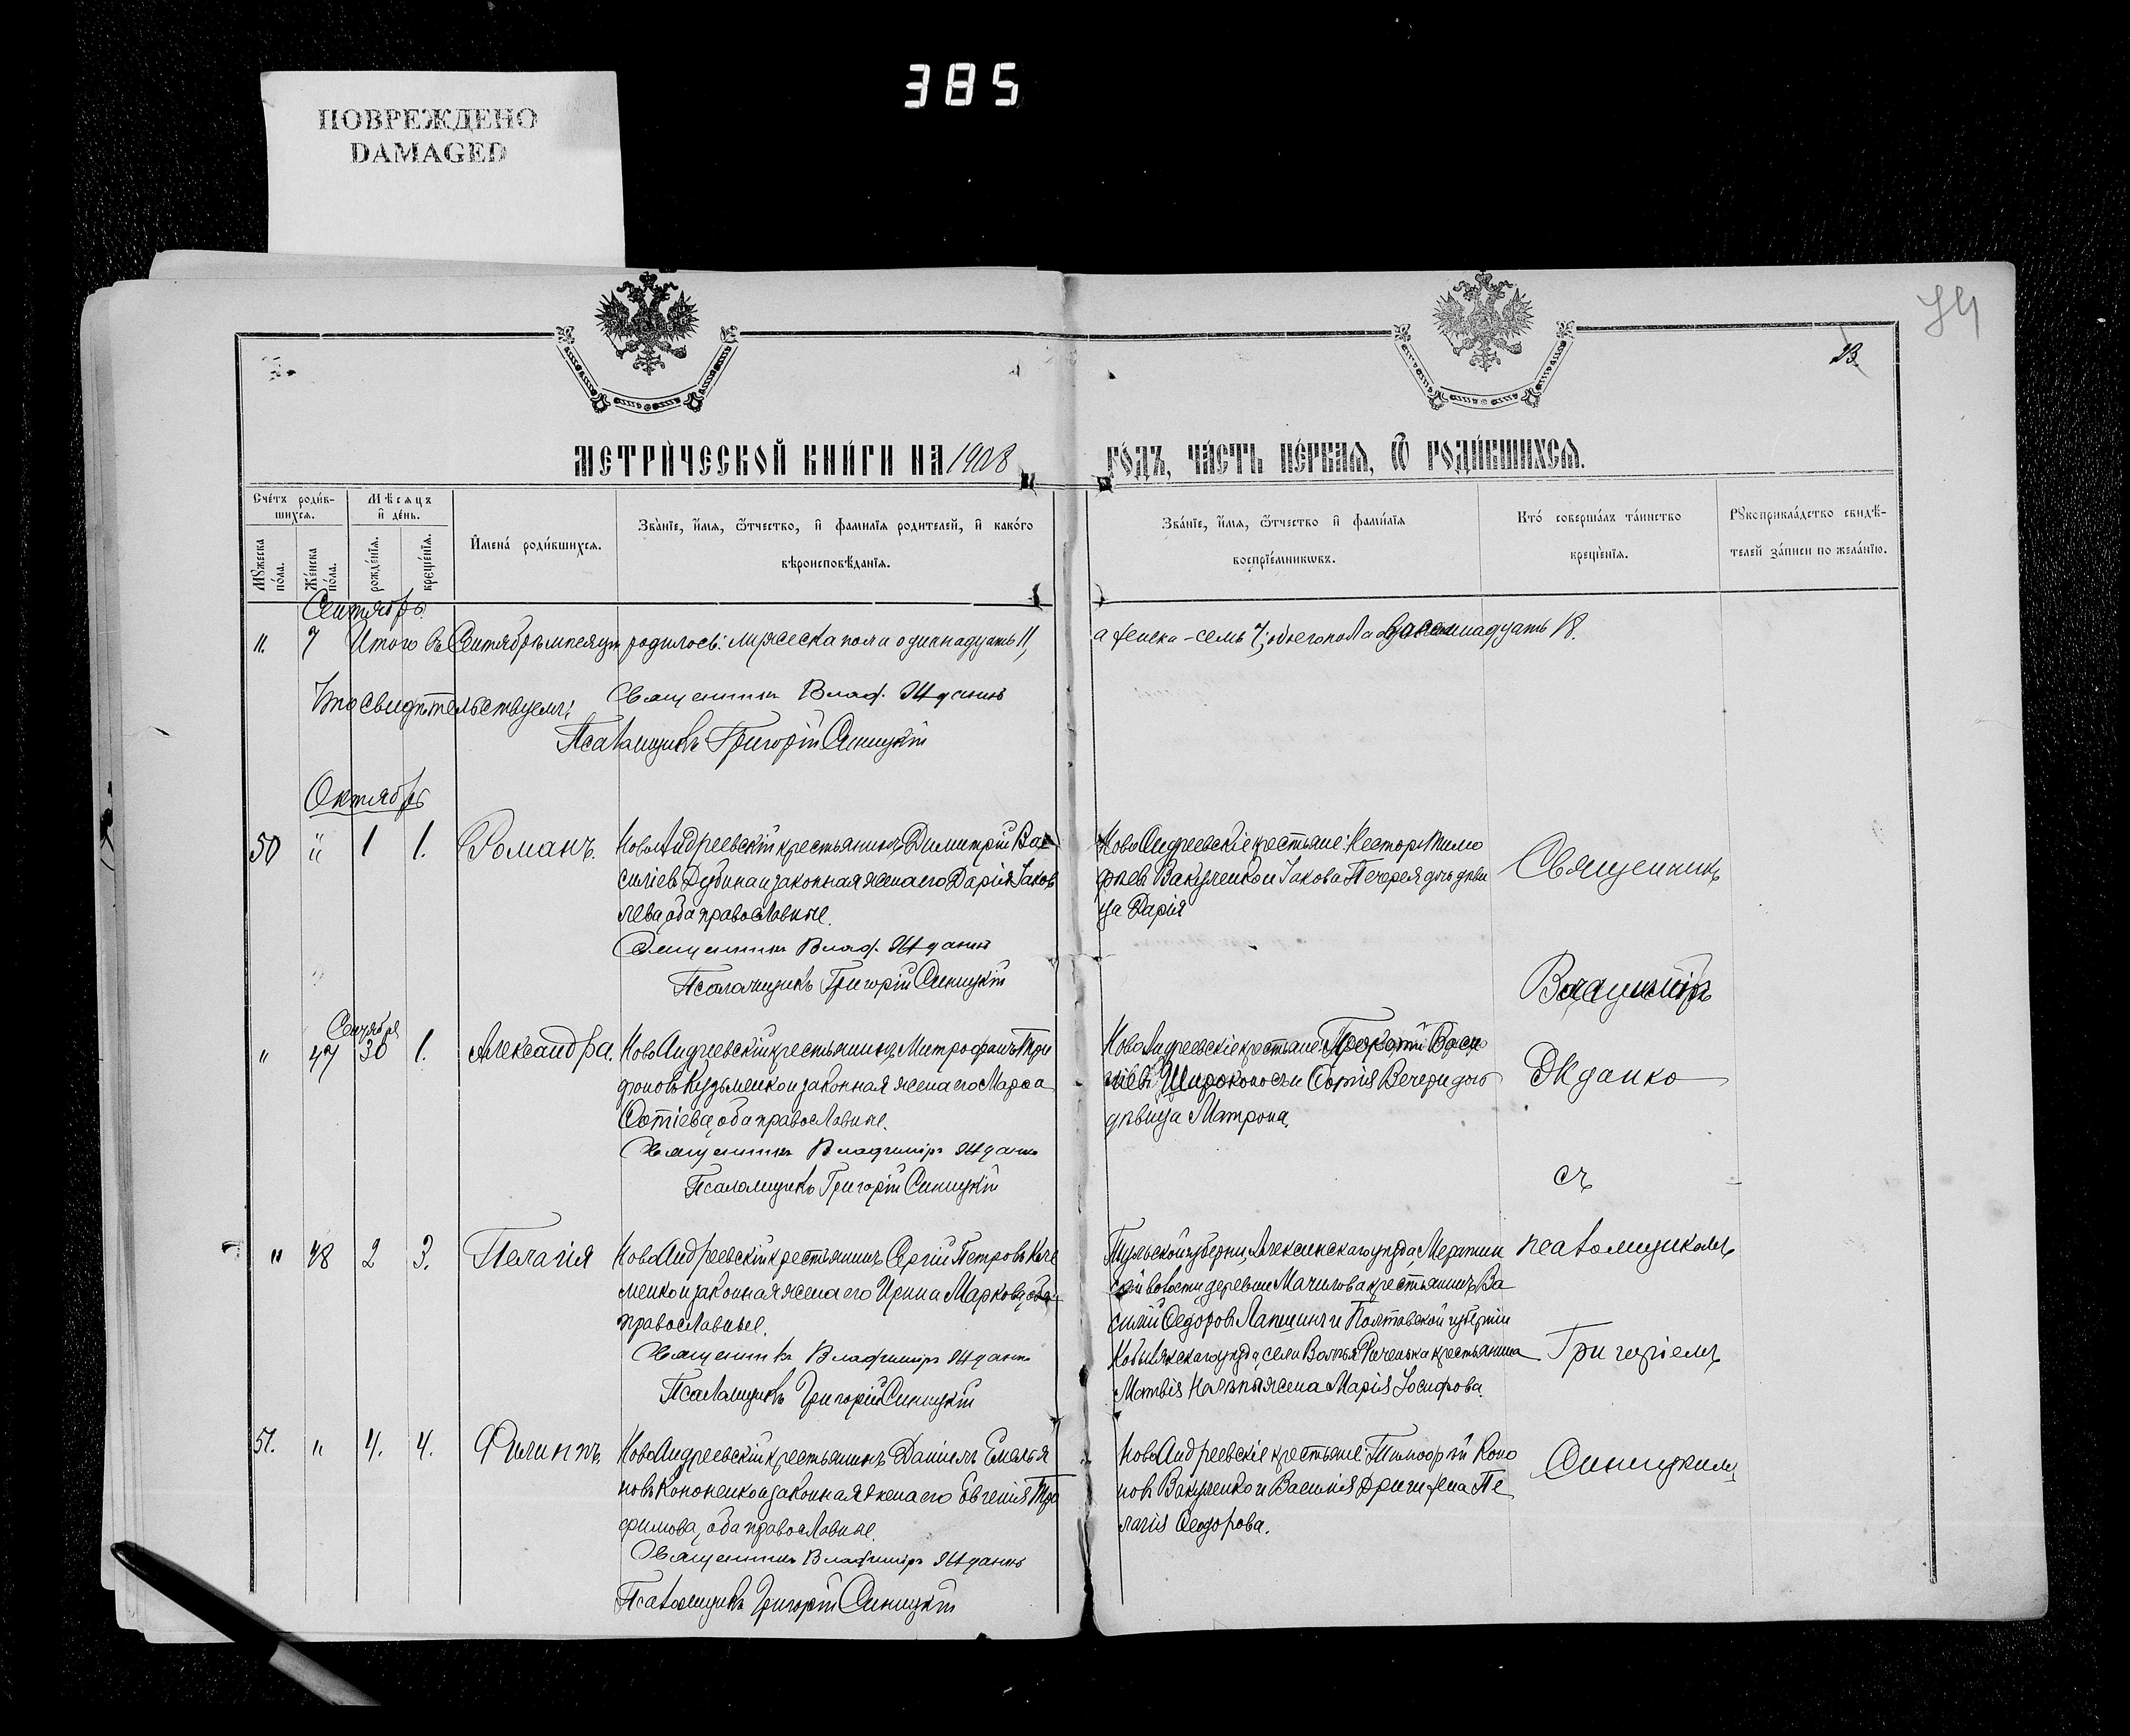 385
ПОВРЕЖДЕНО
DAMAGED
МЕТРИ́ЧЕСКОЙ КНИ́ГИ НА 1908
ГО́ДЪ, ЧА́СТЬ ПЕ́РВАЯ, Ѿ РОДИ́ВШИХСЯ.
Сче́тъ роди́в-
шихся.
Мѣсяцъ
и де́нь.
Му́жеска
по́ла.
Же́нска
по́ла.
рожде́нїя.
креще́нїя.
Имена́ роди́вшихся.
Зва́нїе, и́мя, ѻ́тчество, и фами́лїя родителей, и како́го
вѣроисповѣ́данїя.
Зва́нїе, и́мя, ѻ́тчество и фами́лїя
воспрїе́мниковъ.
Кто́ соверша́лъ та́инство
креще́нїя.
Рꙋкоприкла́дство свидѣ́-
телей за́писи по жела́нїю.
Сентябрь.
11. 7 Итого въ Сентябрѣ мѣсяцѣ родилось: мужеска пола одиннадцать 11,
а женска - семь 7; обоего пола восемнадцать 18.
Что свидѣтельствуемъ: Священникъ Влад. Жданко
Псаломщикъ Григорій Синицкій
Октябрь
50 " 1 1. Романъ.
НовоАндреевскій крестьянинъ Димитрій Ва
силіевъ Дубина и законная жена его Дарія Іаков
лева, оба православные.
Священникъ Влад. Жданко
Псаломщикъ Григорій Синицкій
НовоАндреевскіе крестьяне: Несторъ Тимо
фѣевъ Вакуленко и Іакова Печерея дочь дѣви
ца Дарія
Священникъ
Владиміръ
Сентября
" 47 30 1. Александра.
НовоАндреевскій крестьянинъ Митрофанъ Три
фоновъ Кузьменко и законная жена его Марѳа
Фотіева, оба православные.
Священникъ Владиміръ Жданко
Псаломщикъ Григорій Синицкій
НовоАндреевскіе крестьяне: Прокопій Васи
ліевъ Широконосъ и Фотія Вечери дочь
дѣвица Матрона.
Жданко
съ
" 48 2 3. Пелагія
НовоАндреевскій крестьянинъ Сергій Петровъ Кле
менко и законная жена его Ирина Маркова, оба
православные.
Священникъ Владиміръ Жданко
Псаломщикъ Григорій Синицкій
Тульской губерніи, Алексинскаго уѣзда,
ской волости деревни крестьянинъ Ва
силій Ѳедоровъ Лапшинъ и Полтавской губерніи
Кобылякскаго уѣзда, села крестьянина
Матвія жена Марія Іосифова.
псаломщикомъ
Григоріемъ
51. " 4. 4. Филиппъ.
НовоАндреевскій крестьянинъ Даніилъ Емелья
новъ Кононенко и законная жена его Евгенія Тро
фимова, оба православные.
Священникъ Владиміръ Жданко
Псаломщикъ Григорій Синицкій
НовоАндреевскіе крестьяне: Тимофѣй Коно
новъ Вакуленко и Василія Дриги жена Пе
лагія Ѳеодорова.
Синицкимъ